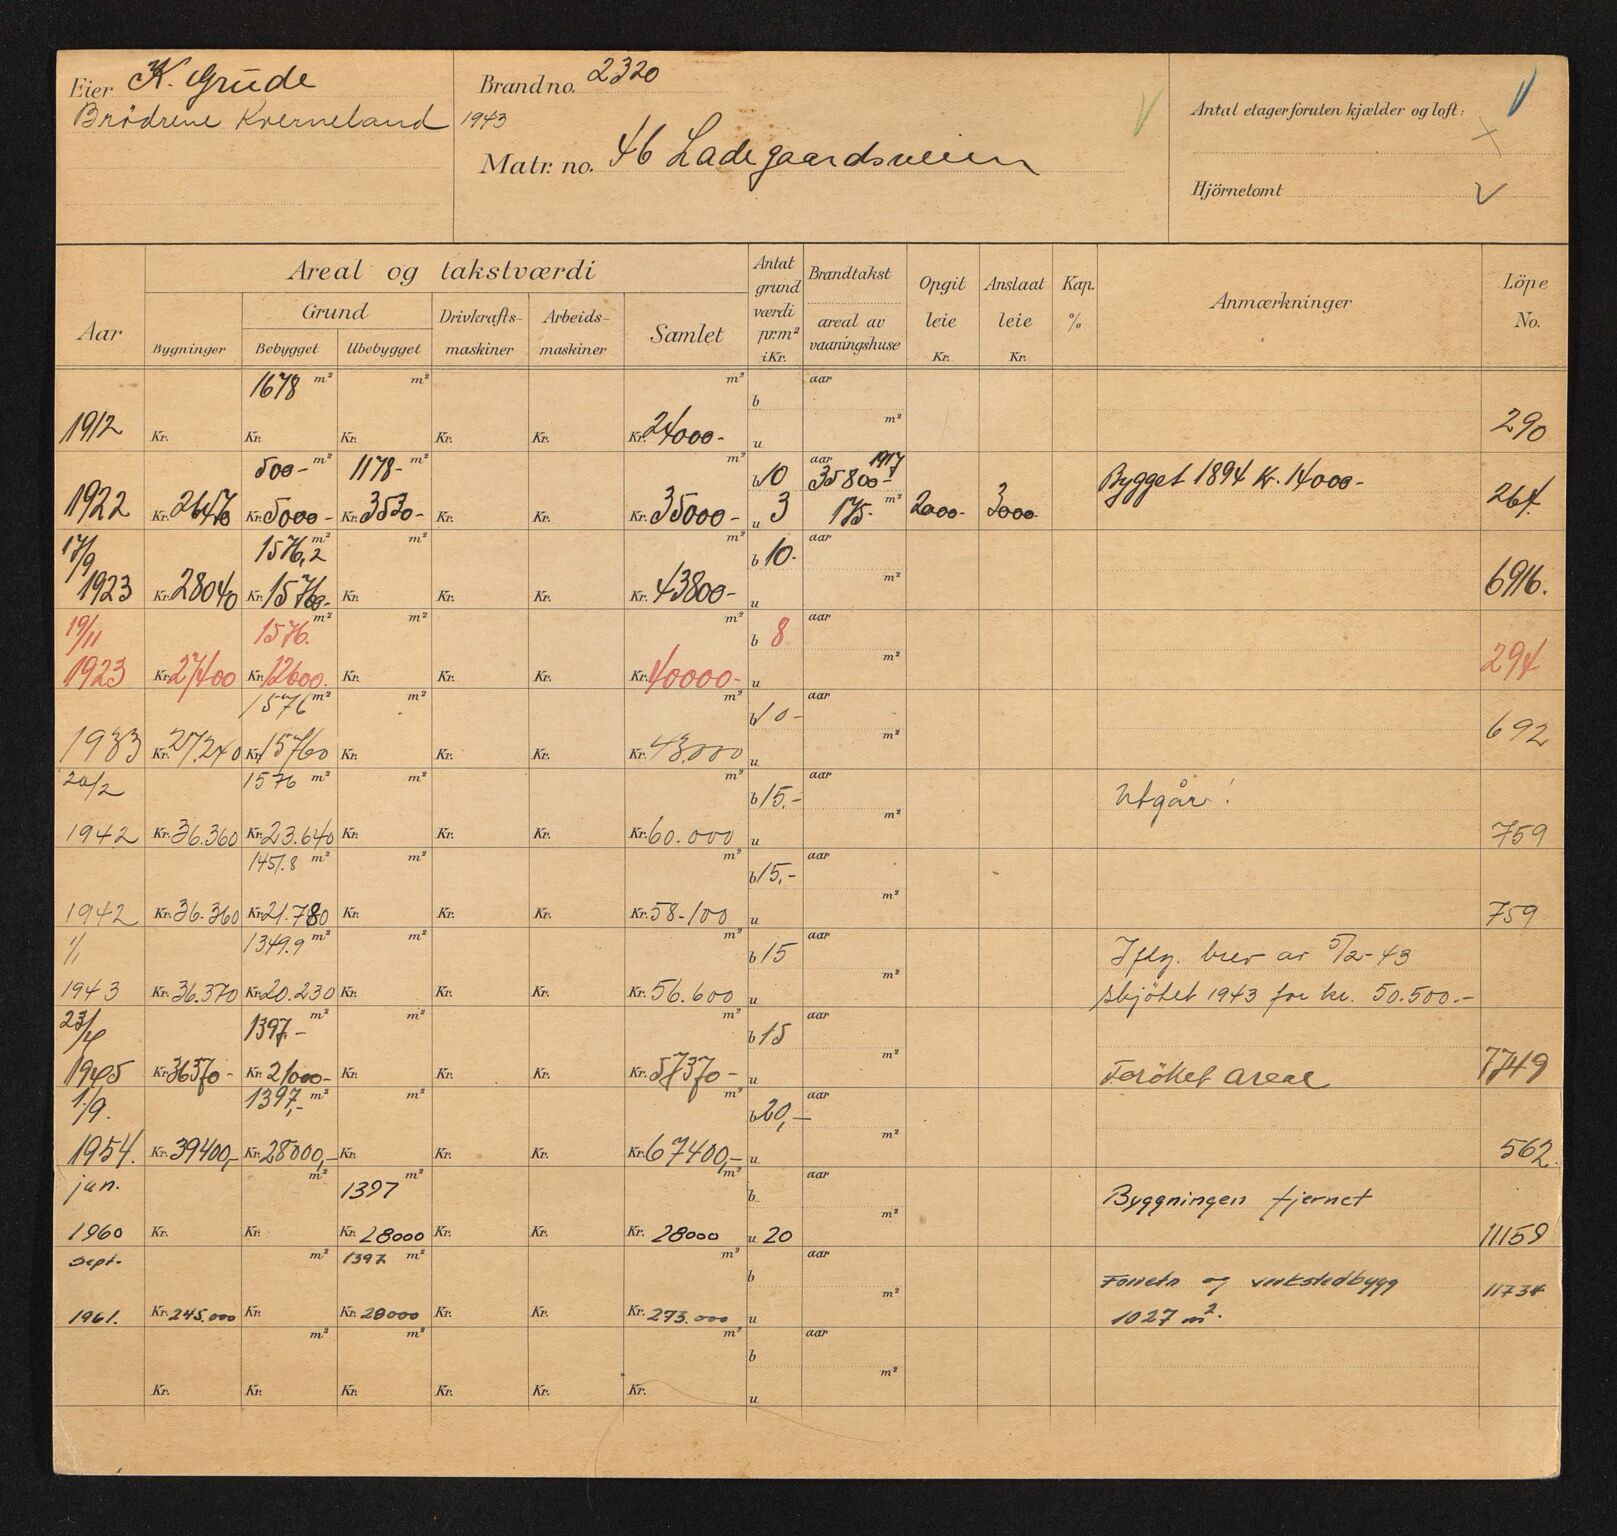 Eier K. Grude
Brödrene Kverneland 1943
Brand no. 2320
Matr. no. 46 Ladegaardsveien
Antal etager foruten kjælder og loft:
Hjörnetomt
Aar
Areal og takstværdi
Bygninger
Grund
Bebygget Ubebygget
Drivkrafts-maskiner
Arbeids-maskiner
Samlet
Antal grund værdi pr. m² i Kr.
Brandtakst
areal av vaaningshuse
Opgit leie Kr.
Anslaat leie Kr.
Kap. %
Anmærkninger
Löpe No.
1678 m² m² m² aar
b m²
1912 Kr. Kr. Kr. Kr. Kr. Kr. 24000- u 290
500- m² 1178- m² m² b 10 aar 1917 35800- Bygget 1894 kr. 14000-
1922 Kr. 26470 Kr. 5000- Kr. 3530- Kr. Kr. Kr. 35000- u 3 175- m² 2000- 3000- 264.
17/9 1576,2 m² m² m² b 10- aar
1923 Kr. 28040 Kr. 15760- Kr. Kr. Kr. Kr. 43800- u m² 6916.
19/11 1576. m² m² m² b 8 aar
1923 Kr. 27400 Kr. 12600. Kr. Kr. Kr. Kr. 40000- u m² 294
1576 m² m² m² b 10- aar
1933 Kr. 27.240 Kr. 15760 Kr. Kr. Kr. Kr. 43.000 u m² 692
20/2 1576 m² m² m² b 15.- aar Utgår!
1942 Kr. 36.360 Kr. 23.640 Kr. Kr. Kr. Kr. 60.000 u m² 759
1451.8 m² m² m² b 15,- aar
1942 Kr. 36.360 Kr. 21.780 Kr. Kr. Kr. Kr. 58-100 u m² 759
1/1 1349.9 m² m² m² b 15 aar Iflg. brev av 5/2-43
1943 Kr. 36.370 Kr. 20.230 Kr. Kr. Kr. Kr. 56.600 u m² skjötet 1943 for kr. 50.500.-
23/4 1397,- m² m² m² b 15 aar
1945 Kr. 36370- Kr. 21000- Kr. Kr. Kr. Kr. 57370- u m² Foröket areal 7749
1./9. 1397,- m² m² m² b 20,- aar
1954. Kr. 39400,- Kr. 28000,- Kr. Kr. Kr. Kr. 67400,- u m² 562.
jan. m² 1397 m² m² b aar Byggningen fjernet
1960 Kr. Kr. Kr. 28000 Kr. Kr. Kr. 28000 u 20 m² 11159
sept. m² 1397 m² m² b aar Forretn og verkstedbygg 11734
1961. Kr. 245.000 Kr. Kr. 28000 Kr. Kr. Kr. 273.000 u m² 1027 m².
m² m² m² b aar
Kr. Kr. Kr. Kr. Kr. Kr. u m²